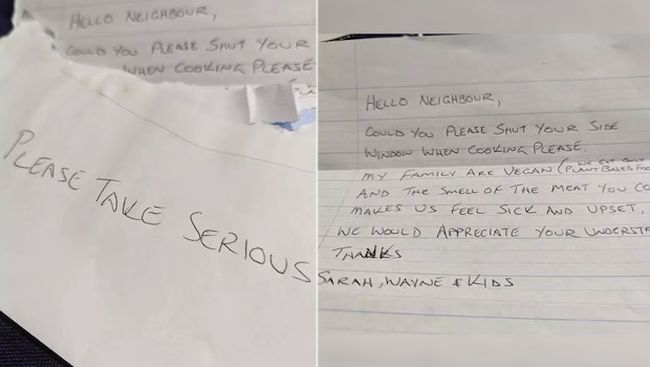 HELLO NEIGHBOUR,
COULD YOU PLEASE SHUT YOUR
WHEN COOKING PLEASE
PLEASE TAKE SERIOUS
HELLO NEIGHBOUR,
COULD YOU PLEASE SHUT YOUR SIDE
WINDOW WHEN COOKING PLEASE.
MY FAMILY ARE VEGAN (WE EAT ONLY
PLANT BASED
AND THE SMELL OF THE MEAT YOU CO
MAKES US FEEL SICK AND UPSET.
WE WOULD APPRECIATE YOUR UNDERST
THANKS
SARAH, WAYNE & KIDS